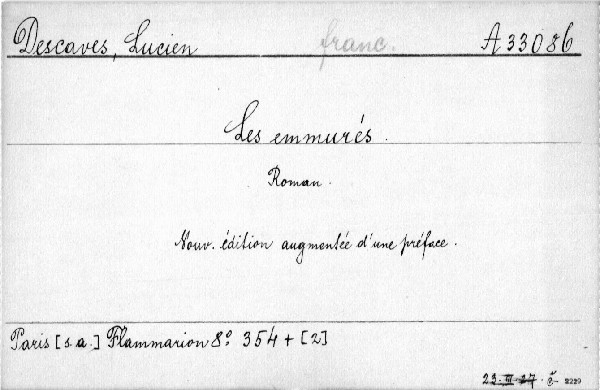 Descaves, Lucien franc. A 33086
Les emmurés.
Roman.
Nouv. édition augmentée d'une préface.
Paris [s.a.] Flammarion 8° 354 + [2]
23. III. 27. 2220